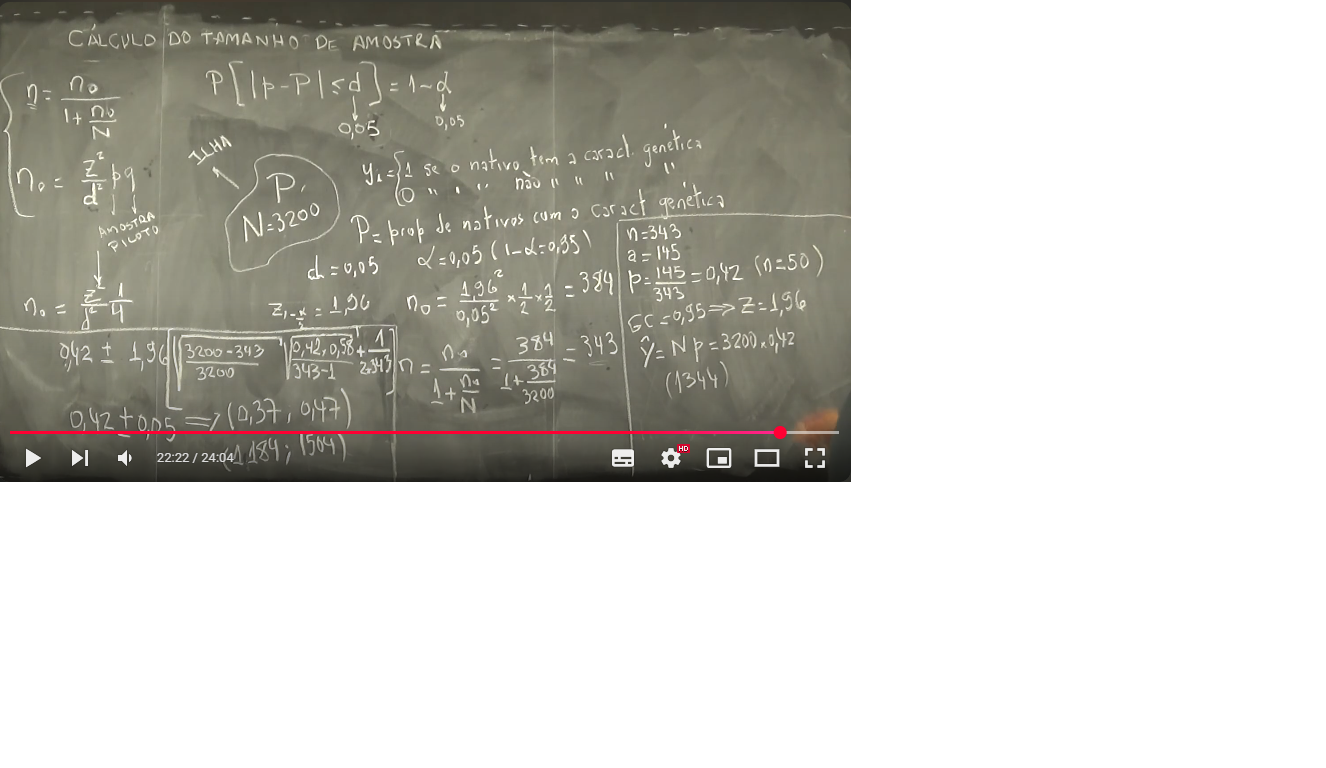 CÁLCULO DO TAMANHO DE AMOSTRA
n = n₀ / (1 + n₀/N)
P[|p-P| ≤ d] = 1-α
0,05
0,05
n₀ = z²/d² pq
AMOSTRA
PILOTO
n₀ = z²/d² 1/4
ILHA
P
N=3200
yᵢ = { 1 se o nativo tem a caract. genética
0 " " " não " " " "
P = prop de nativos com a caract genética
d = 0,05
α = 0,05 (1-α=0,95)
z₁₋α/₂ = 1,96
n₀ = 1,96²/0,05² × 1/2 × 1/2 = 384
n = n₀ / (1 + n₀/N) = 384 / (1 + 384/3200) = 343
n=343
a=145
p = 145/343 = 0,42 (n=50)
GC=0,95 ⇒ Z=1,96
Ŷ = Np = 3200×0,42
(1344)
0,42 ± 1,96 [√((3200-343)/3200) √(0,42.0,58/(343-1)) + 1/2.343]
0,42 ± 0,05 ⇒ (0,37, 0,47)
(1184; 1504)
22:22 / 24:04
HD